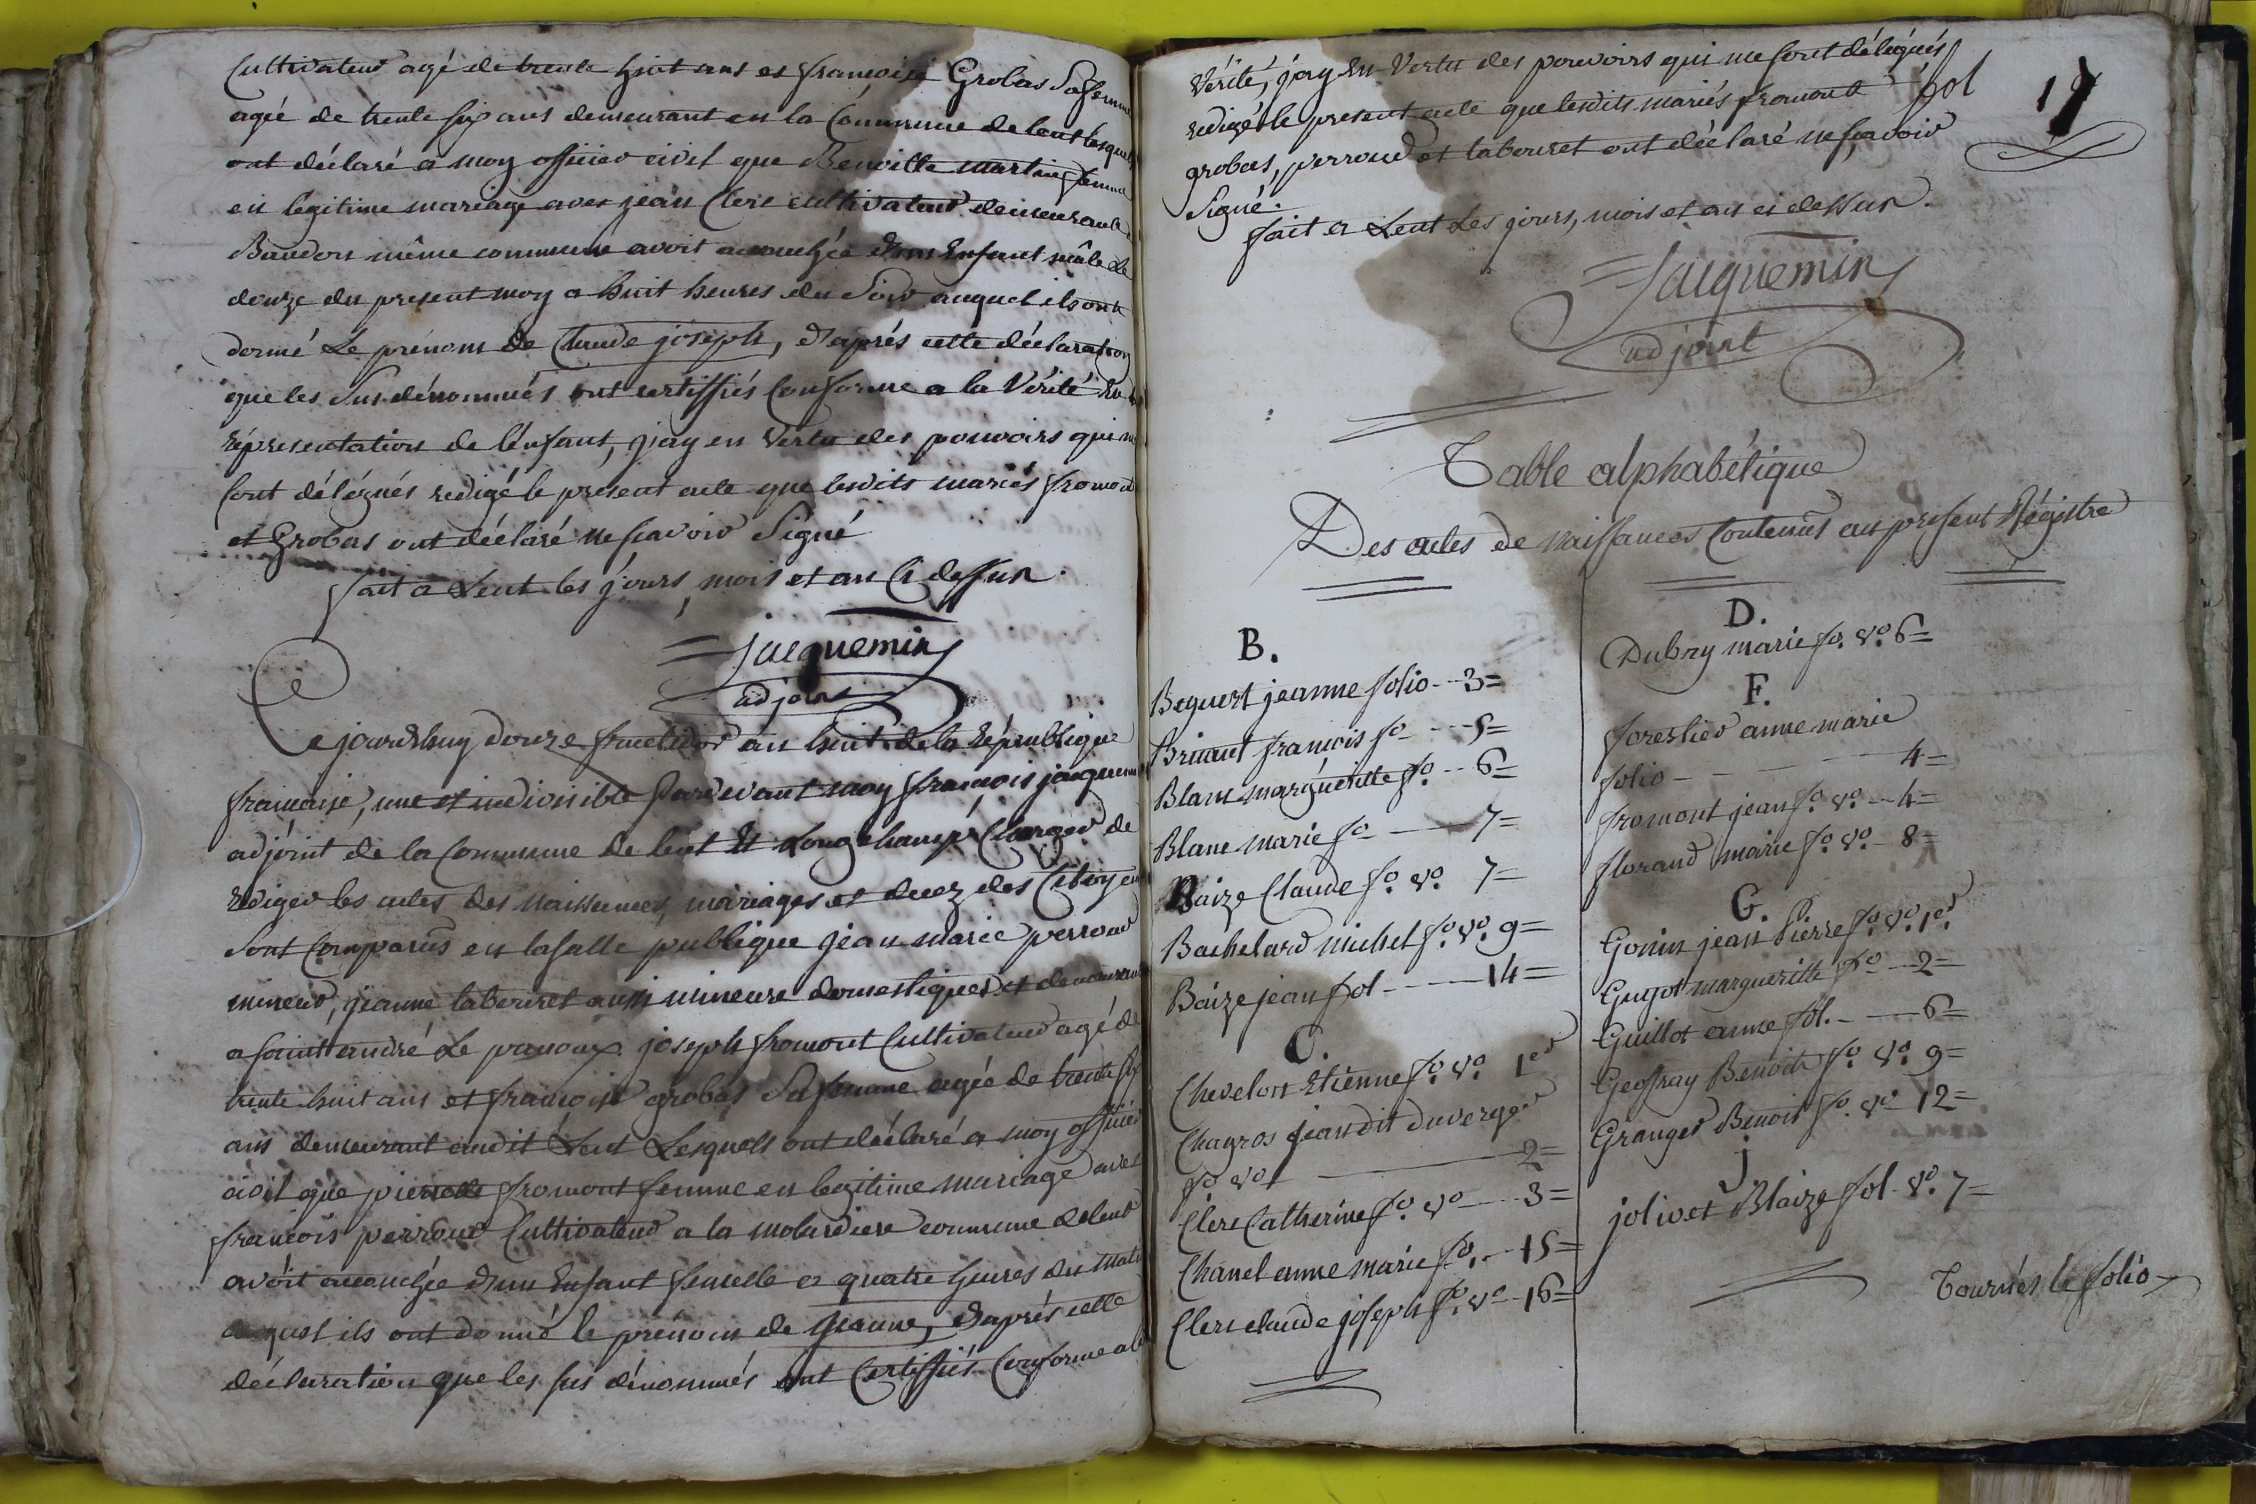 Cultivateur agé de trente huit ans et françoise Grobas Sa femme
agée de trente six ans demeurant en la Commune de lent lesquels
ont déclaré a moy officier civil que Benoitte martin femme
en legitime mariage avec jean Clerc cultivateur demeurant a
Baudon même commune avoit accouchée d'un Enfant mâle Le
douze du present moy a huit heures du Soir auquel ils ont
donné Le prénom de Claude joseph, d'après cette déclaration
que les Sus dénommés ont certiffiés Conforme a la Vérité Et la
réprésentation de l'enfant, j'ay en Vertu des pouvoirs qui me
sont délégués redigé le présent acte que lesdits mariés fromont
et Grobas ont déclaré ne sçavoir Signé
fait a Lent les jours, mois et an Ci dessus.
jacquemin
adjoint
Ce jourdhuy douze fructidor an huit de la République
française, une et indivisible Pardevant moy françois jacquemin
adjoint de la Commune de lent Et Longchamp Charger de
rédiger les actes des naissances, mariages et decez des Citoyens
Sont Comparus en la salle publique jean marie perroud
mineur, jeanne labouret aussi mineure domestiques et demeurant
a saint andré Le panoux joseph fromont Cultivateur agé de
trente huit ans et françoise grobas Sa femme agée de trente six
ans demeurant audit Lent Lesquels ont déclaré a moy officier
civil que pierrette fromont femme en legitime mariage avec
françois perroud Cultivateur a la molardiere commune de lent
avoit accouchée d'un Enfant femelle a quatre heures du matin
auquel ils ont donné le prénom de jeanne, d'après cette
déclaration que les sus dénommés ont Certiffiés Conforme a la
Vérité, j'ay En Vertu des pouvoirs qui me sont délégués
redigé le présent acte que lesdits mariés fromont
fol 17
grobas, perroud et labouret ont déclaré ne sçavoir
Signé.
fait a Lent Les jours, mois et an ci dessus.
Jacquemin
adjoint
Table alphabétique
Des actes de naissances Contenus au présent Régistre
B.
Beguert jeanne folio --- 3=
Brinant françois fo --- 5=
Blanc marguéritte fo. -- 6=
Blanc marie fo --- 7=
Baize Claude fo. vo. 7=
Bachelard michel fo. vo. 9=
Baize jean fol --- 14=
C.
Chevelon Etienne fo. vo. 1er
Chagros jean dit duverger
fo vo --- 2=
Clerc Catherine fo. vo --- 3=
Chanel anne marie fo. -- 15=
Clerc claude joseph fo. vo -- 16=
D.
Dubny marie fo. vo. 6=
F.
forestier anne marie
folio --- 4=
fromont jean fo. vo. -- 4=
florand marie fo. vo. - 8=
G.
Gonin jean Pierre fo. vo. 1er
Guyot marguéritte fo --- 2=
Guillot anne fol. --- 6=
Geoffray Benoit fo. vo. 9=
Granger Benoit fo. vo - 12=
j
jolivet Blaize fol. vo. 7=
Tournés le folio